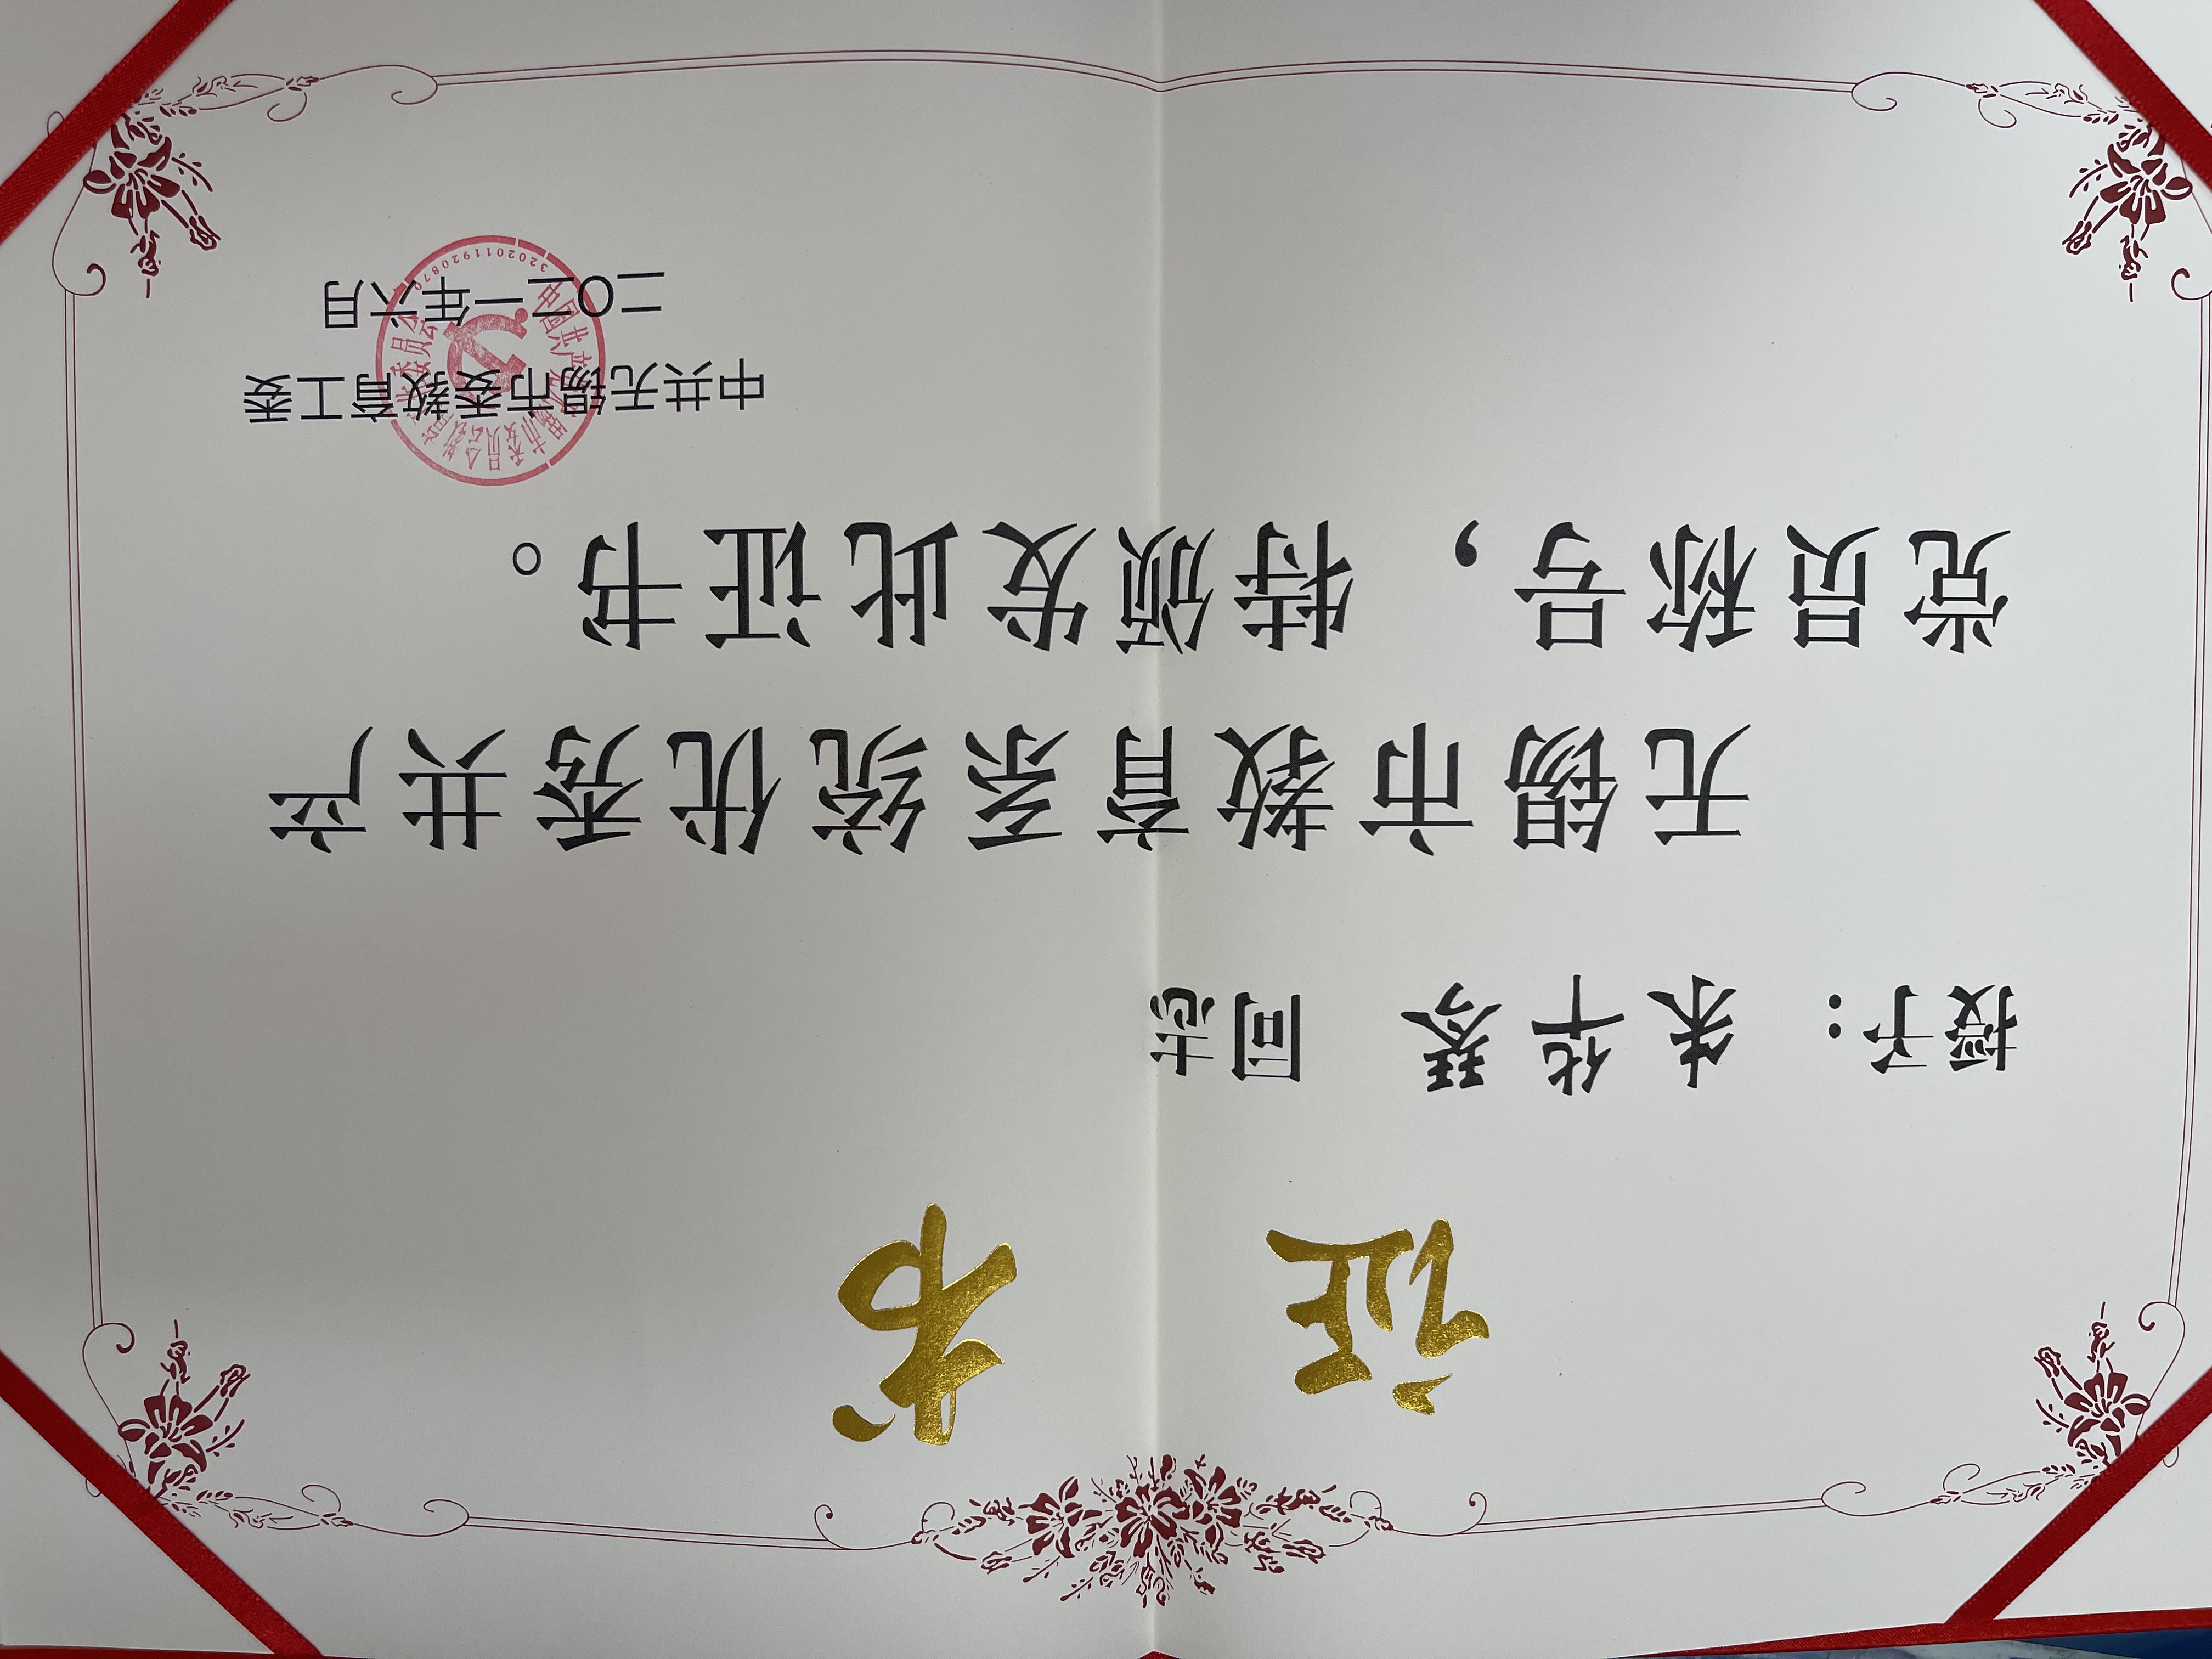 证 书
授予：朱华琴 同志
无锡市教育系统优秀共产
党员称号，特颁发此证书。
中共无锡市委教育工委
二〇二一年六月
中国共产党无锡市委员会教育工作委员会